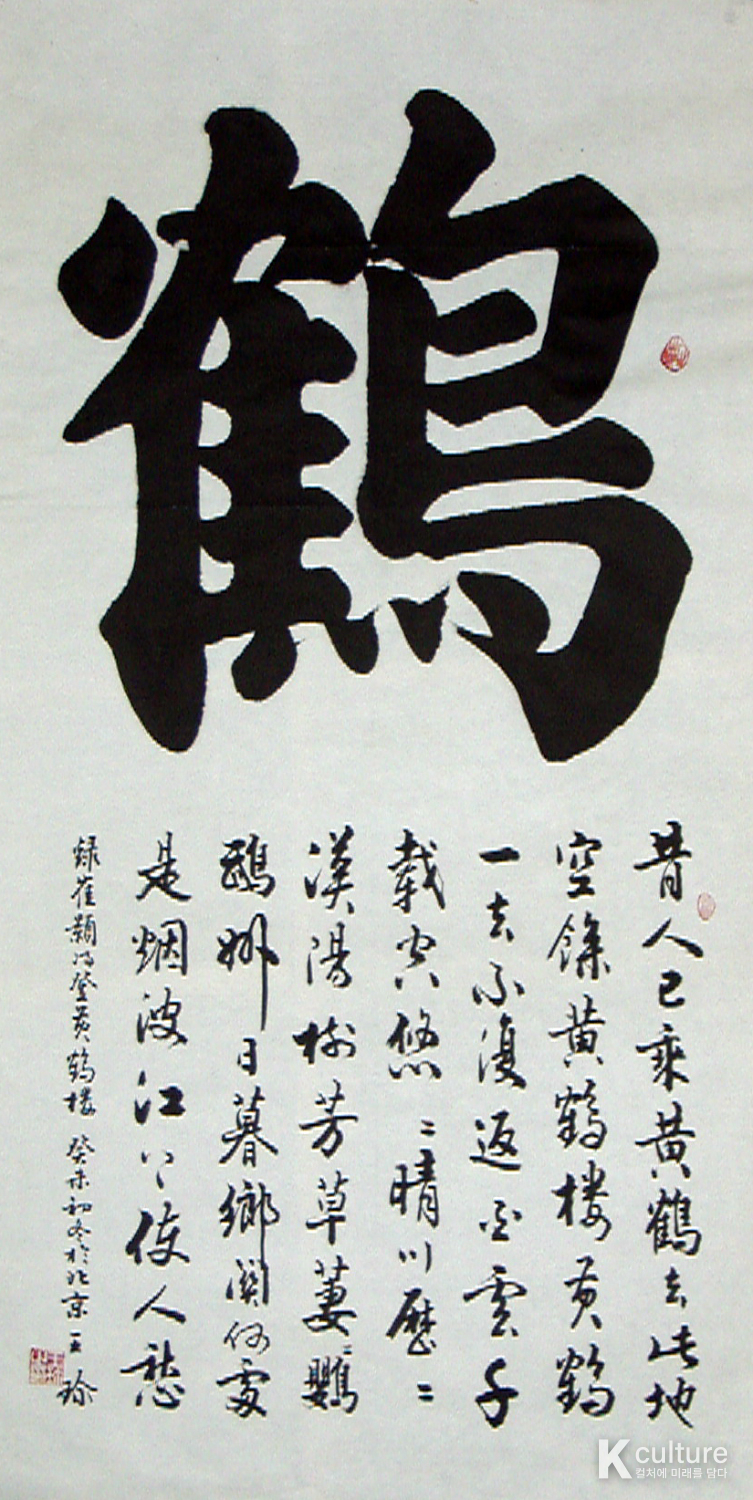 鶴
昔人已乘黄鶴去此地
空餘黄鶴楼黄鶴
一去不復返白雲千
載空悠〻晴川歷〻
漢陽樹芳草萋〻鸚
鵡洲日暮鄉関何處
是烟波江上使人愁
録崔顥詩登黄鶴楼 癸未初冬於北京 王珍
K culture
컬처에 미래를 담다